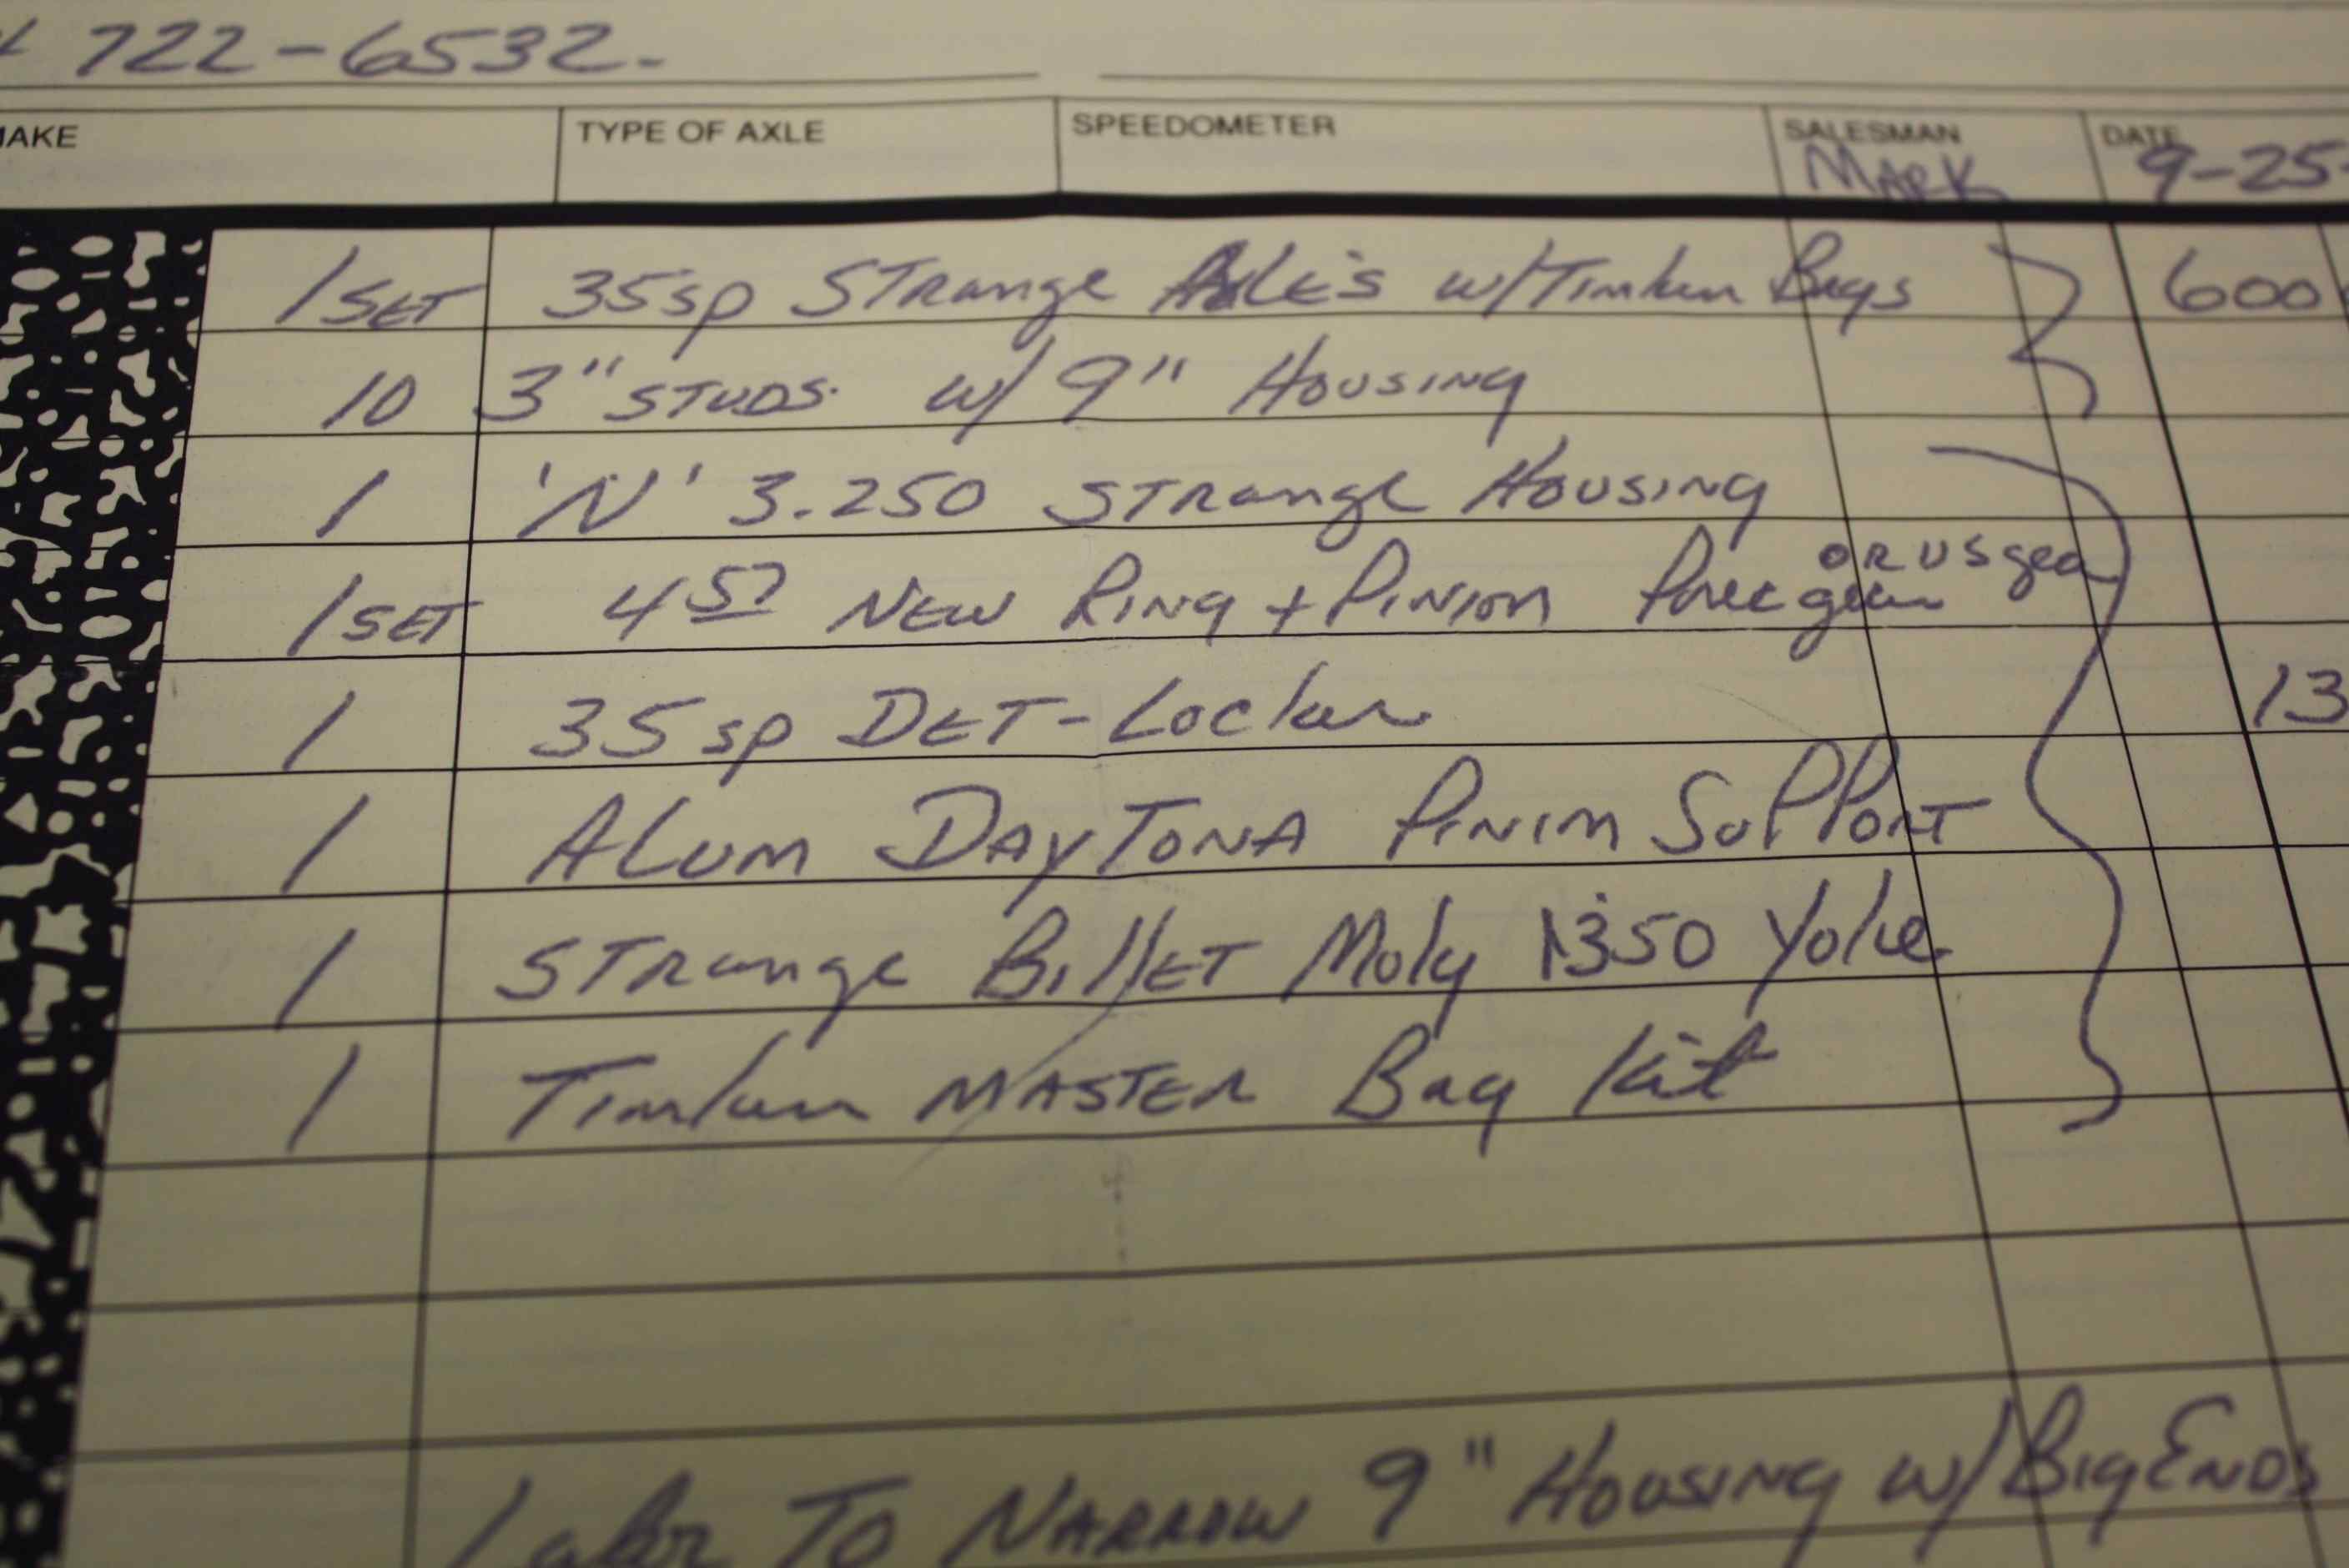 722-6532.
MAKE TYPE OF AXLE SPEEDOMETER SALESMAN DATE
MARK 9-25-
1 SET 35sp STrange Axle's w/Timken Brgs 600
10 3" STUDS. w/ 9" HOUSING
1 'N' 3.250 STRange HOUSING
OR US gear
1 SET 4 57 NEW RING + PINION gear
1 35 sp DET-Locker 13
1 ALUM DAYTONA PINION SUPPORT
1 STRange BillET Moly 1350 Yoke
1 Timken MASTER Brg Kit
Labor TO NARROW 9" HOUSING w/ Big ENDS